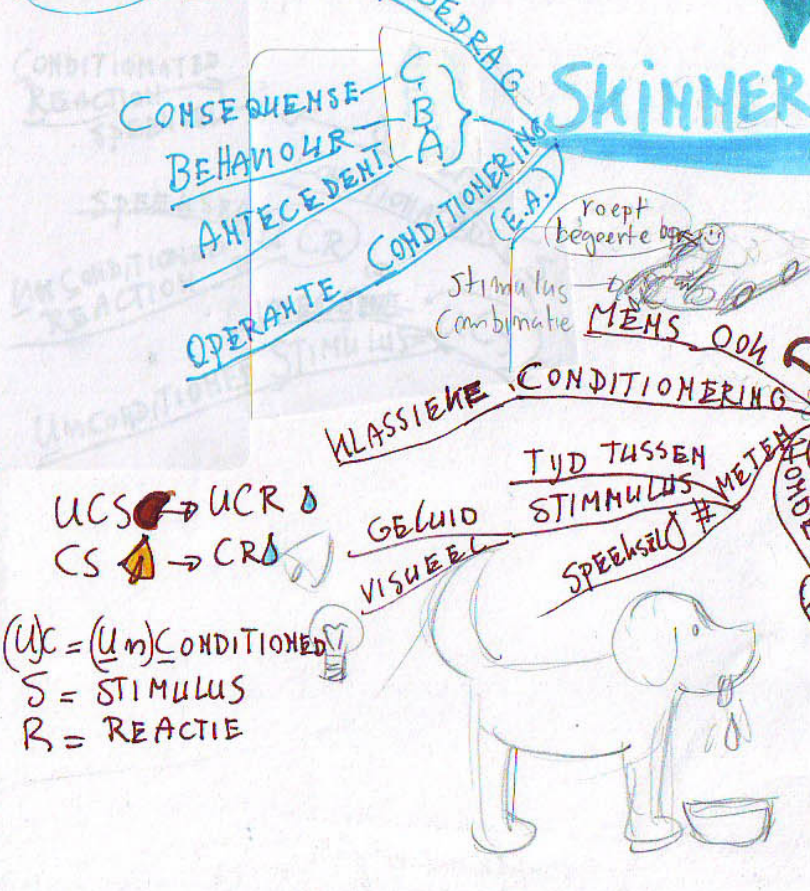 GEDRAG
SKINNER
CONSEQUENSE
C
BEHAVIOUR
B
ANTECEDENT
A
OPERANTE CONDITIONERING
(E.A.)
roept
begeerte op
Stimulus
Combinatie
MENS OOK
KLASSIEKE CONDITIONERING
METEN
TIJD TUSSEN
STIMMULUS
GELUID
VISUEEL
# SPEEKSEL
UCS → UCR
CS → CR
(U)C = (Un)CONDITIONED
S = STIMULUS
R = REACTIE
CONDITIONATED
REACTION
SPEEKSEL
UNCONDITIONED
REACTION
CR
UNCONDITIONED STIMULUS